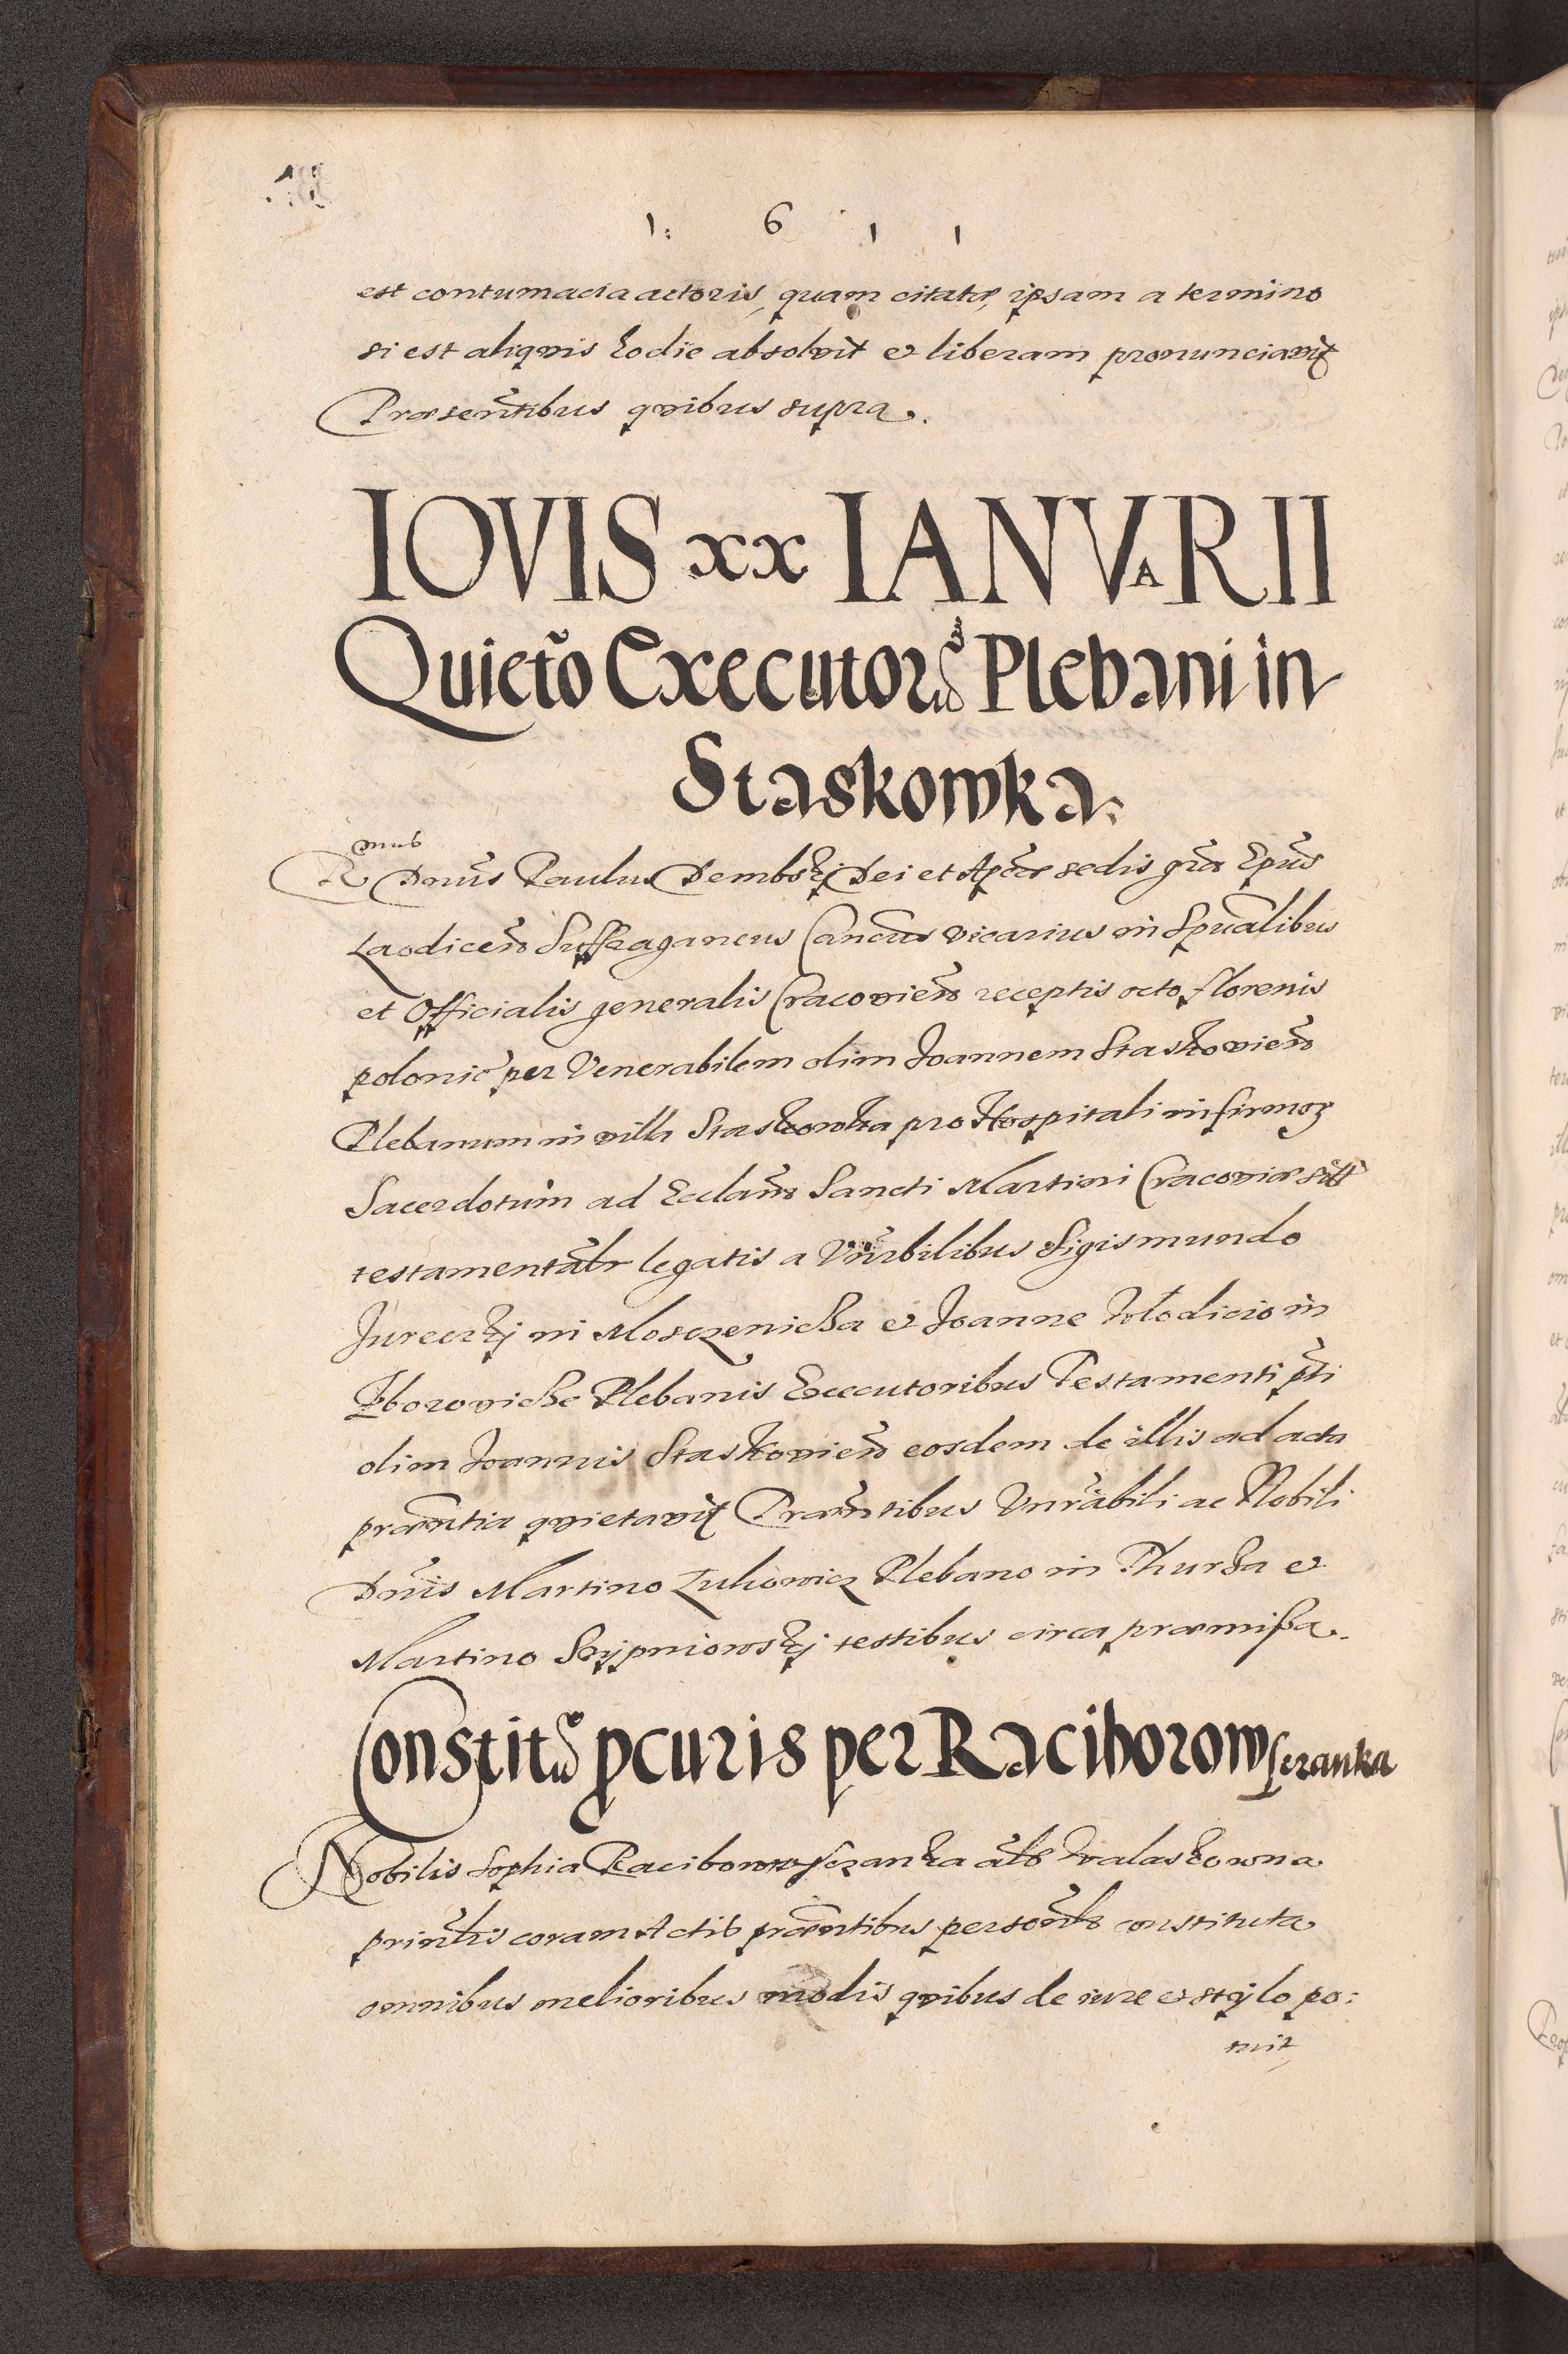 1: 6 1 1
est contumacia actoris, quam citatæ, ipsam a termino
si est aliqvis hodie absolvit et liberam pronunciavit
Præsentibus qvibus supra.
IOVIS xx IANVARII
Quieto Executorũ Plebani in
Staskowka.
Rndus Dnus Paulus Dembski Dei et Aplicæ sedis gra Epus
Laodiceñ Suffraganeus Cancus vicarius in Spualibus
et Officialis generalis Cracovieñ receptis octo florenis
polonic per Venerabilem olim Joannem Staskovieñ
Plebanum in villa Staskowka pro Hospitali infirmoꝝ
Sacerdotum ad Ecclam Sancti Martini Cracoviæ sitt
testamentalr legatis a Vnrbilibus Sigismundo
Jurecski in Mosczenicha et Joanne Włodicio in
Zborowiche Plebanis Executoribus Testamenti pti
olim Joannis Staskovieñ eosdem de illis ad acta
præntia qvietavit Præntibus Vnrabili ac Nobili
Dnis Martino Zuhowicz Plebano in Thurza et
Martino Skrypniowski testibus circa præmißa.
Constitũ pcuris per Raciborowsczanka
Nobilis Sophia Raciborowsczanka als Walaskowna
prinlis coram Actis præntibus personlr constituta
omnibus melioribus modis qvibus de iure et stylo po:
tuit,